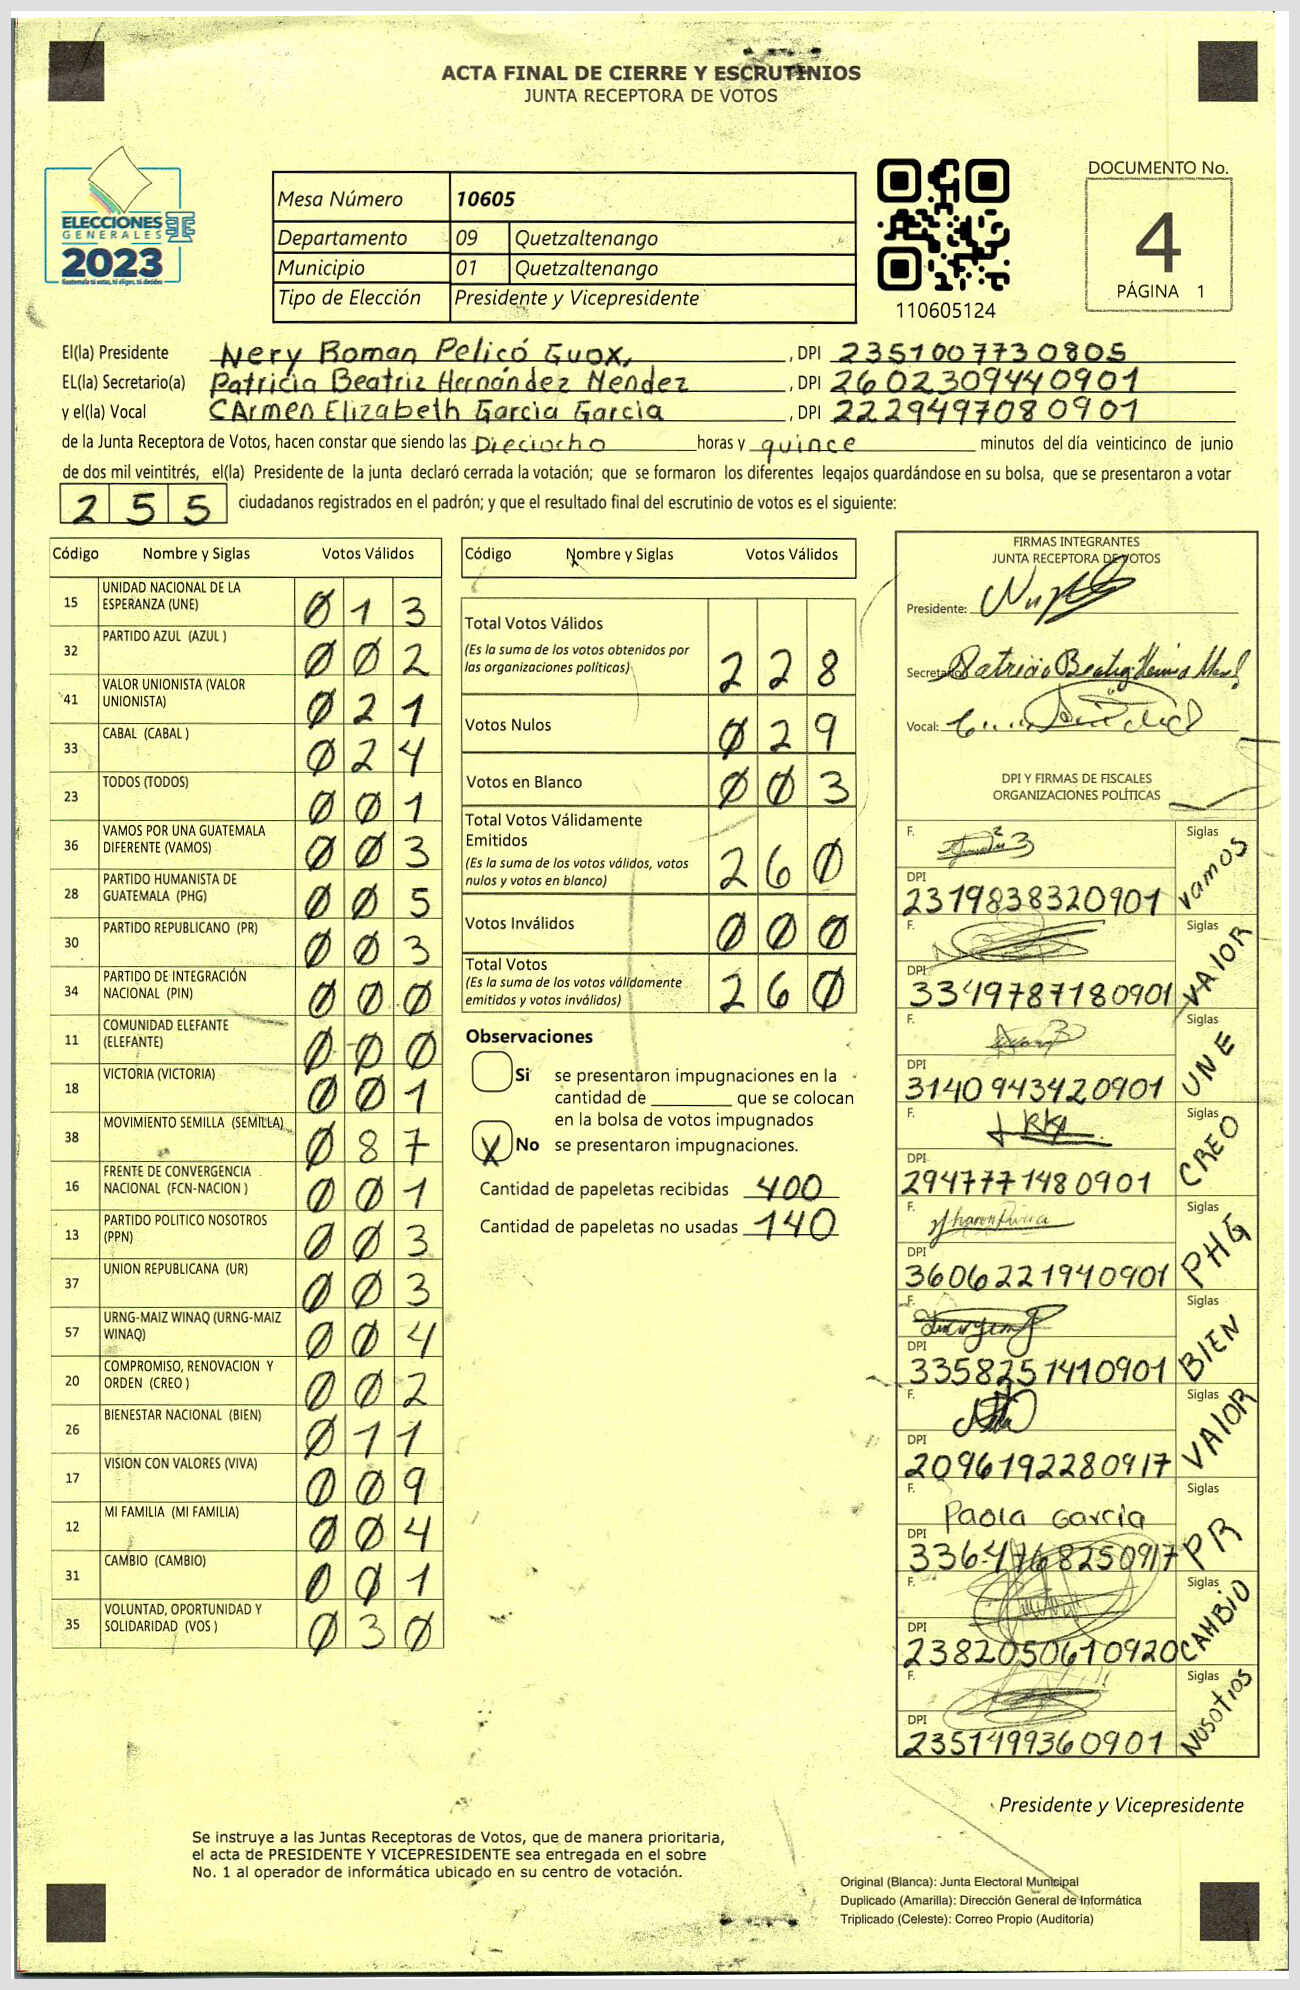 ACTA FINAL DE CIERRE Y ESCRUTINIOS
JUNTA RECEPTORA DE VOTOS
ELECCIONES
GENERALES
2023
Guatemala tú votas, tú eliges, tú decides
Mesa Número 10605
Departamento 09 Quetzaltenango
Municipio 01 Quetzaltenango
Tipo de Elección Presidente y Vicepresidente
110605124
DOCUMENTO No.
4
PÁGINA 1
El(la) Presidente Nery Roman Pelicó Guox, , DPI 2351007730805
EL(la) Secretario(a) Patricia Beatriz Hernández Mendez , DPI 2602309440901
y el(la) Vocal CArmen Elizabeth Garcia Garcia , DPI 2229497080901
de la Junta Receptora de Votos, hacen constar que siendo las Dieciocho horas y quince minutos del día veinticinco de junio
de dos mil veintitrés, el(la) Presidente de la junta declaró cerrada la votación; que se formaron los diferentes legajos guardándose en su bolsa, que se presentaron a votar
255 ciudadanos registrados en el padrón; y que el resultado final del escrutinio de votos es el siguiente:
Código Nombre y Siglas Votos Válidos
15 UNIDAD NACIONAL DE LA ESPERANZA (UNE) 013
32 PARTIDO AZUL (AZUL ) 002
41 VALOR UNIONISTA (VALOR UNIONISTA) 021
33 CABAL (CABAL ) 024
23 TODOS (TODOS) 001
36 VAMOS POR UNA GUATEMALA DIFERENTE (VAMOS) 003
28 PARTIDO HUMANISTA DE GUATEMALA (PHG) 005
30 PARTIDO REPUBLICANO (PR) 003
34 PARTIDO DE INTEGRACIÓN NACIONAL (PIN) 000
11 COMUNIDAD ELEFANTE (ELEFANTE) 000
18 VICTORIA (VICTORIA) 001
38 MOVIMIENTO SEMILLA (SEMILLA) 087
16 FRENTE DE CONVERGENCIA NACIONAL (FCN-NACION ) 001
13 PARTIDO POLITICO NOSOTROS (PPN) 003
37 UNION REPUBLICANA (UR) 003
57 URNG-MAIZ WINAQ (URNG-MAIZ WINAQ) 004
20 COMPROMISO, RENOVACION Y ORDEN (CREO ) 002
26 BIENESTAR NACIONAL (BIEN) 011
17 VISION CON VALORES (VIVA) 009
12 MI FAMILIA (MI FAMILIA) 004
31 CAMBIO (CAMBIO) 001
35 VOLUNTAD, OPORTUNIDAD Y SOLIDARIDAD (VOS ) 030
Código Nombre y Siglas Votos Válidos
Total Votos Válidos 228
(Es la suma de los votos obtenidos por
las organizaciones políticas)
Votos Nulos 029
Votos en Blanco 003
Total Votos Válidamente
Emitidos 260
(Es la suma de los votos válidos, votos
nulos y votos en blanco)
Votos Inválidos 000
Total Votos 260
(Es la suma de los votos válidamente
emitidos y votos inválidos)
Observaciones
Si se presentaron impugnaciones en la
cantidad de ________ que se colocan
en la bolsa de votos impugnados
X No se presentaron impugnaciones.
Cantidad de papeletas recibidas 400
Cantidad de papeletas no usadas 140
FIRMAS INTEGRANTES
JUNTA RECEPTORA DE VOTOS
Presidente:
Secretario
Vocal:
DPI Y FIRMAS DE FISCALES
ORGANIZACIONES POLÍTICAS
F. Siglas vamos
DPI 2319838320901
F. Siglas VAlOR
DPI 3349787180901
F. Siglas UNE
DPI 3140943420901
F. Siglas CREO
DPI 2947771480901
F. Siglas PHG
DPI 3606221940901
F. Siglas BIEN
DPI 3358251410901
F. Siglas VAlOR
DPI 2096192280917
F. Paola Garcia Siglas PR
DPI 3364768250917
F. Siglas CAMBiO
DPI 2382050610920
F. Siglas NOSOTROS
DPI 2351499360901
Presidente y Vicepresidente
Se instruye a las Juntas Receptoras de Votos, que de manera prioritaria,
el acta de PRESIDENTE Y VICEPRESIDENTE sea entregada en el sobre
No. 1 al operador de informática ubicado en su centro de votación.
Original (Blanca): Junta Electoral Municipal
Duplicado (Amarilla): Dirección General de Informática
Triplicado (Celeste): Correo Propio (Auditoría)